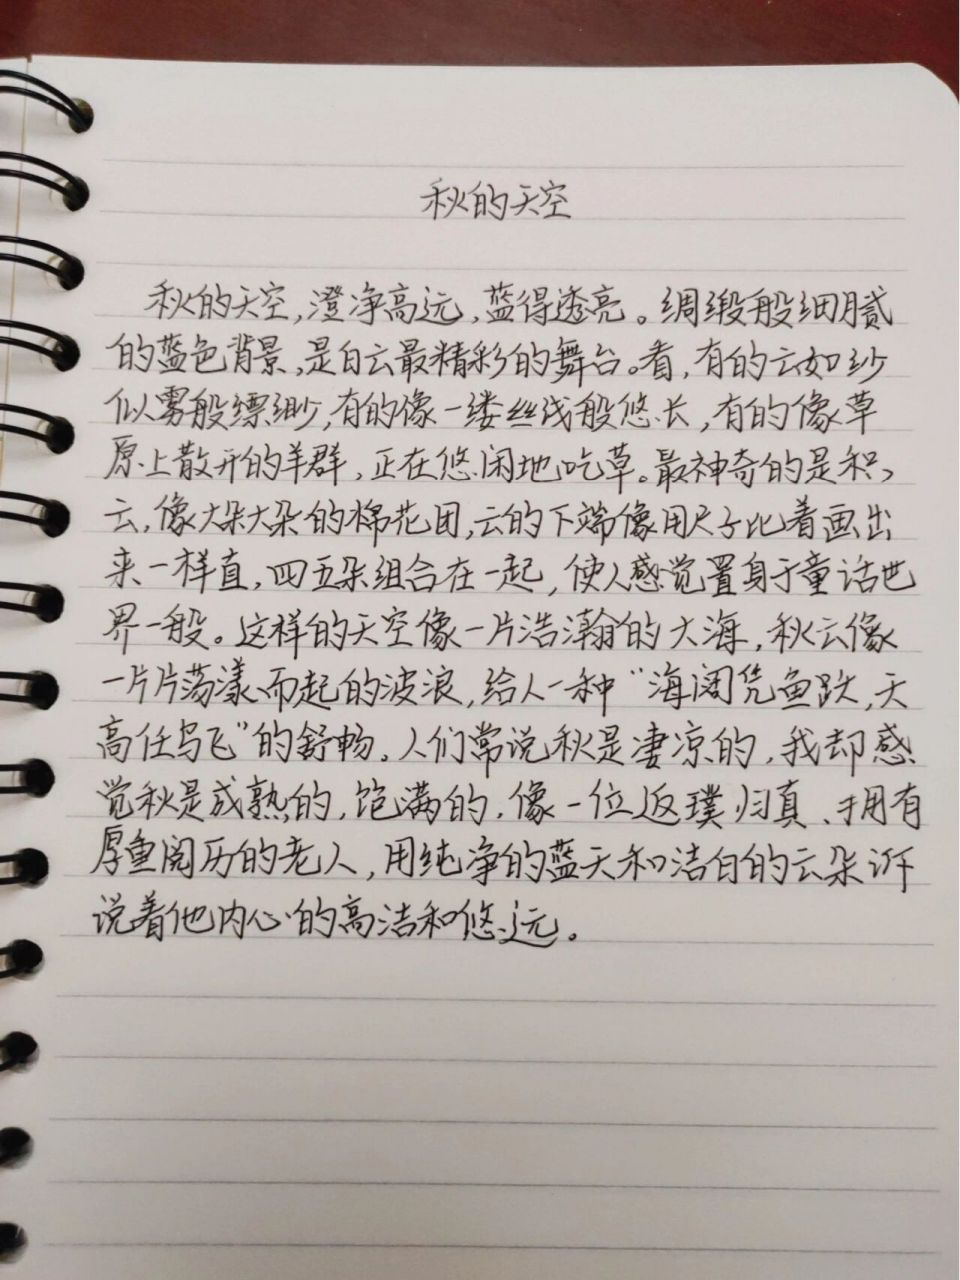 秋的天空
秋的天空,澄净高远,蓝得透亮。绸缎般细腻
的蓝色背景,是白云最精彩的舞台。看,有的云如纱
似雾般缥缈,有的像一缕丝线般悠长,有的像草
原上散开的羊群,正在悠闲地吃草。最神奇的是积
云,像大朵大朵的棉花团,云的下端像用尺子比着画出
来一样直,四五朵组合在一起,使人感觉置身于童话世
界一般。这样的天空像一片浩瀚的大海,秋云像
一片片荡漾而起的波浪,给人一种“海阔凭鱼跃,天
高任鸟飞”的舒畅。人们常说秋是凄凉的,我却感
觉秋是成熟的,饱满的,像一位返璞归真、拥有
厚重阅历的老人,用纯净的蓝天和洁白的云朵诉
说着他内心的高洁和悠远。